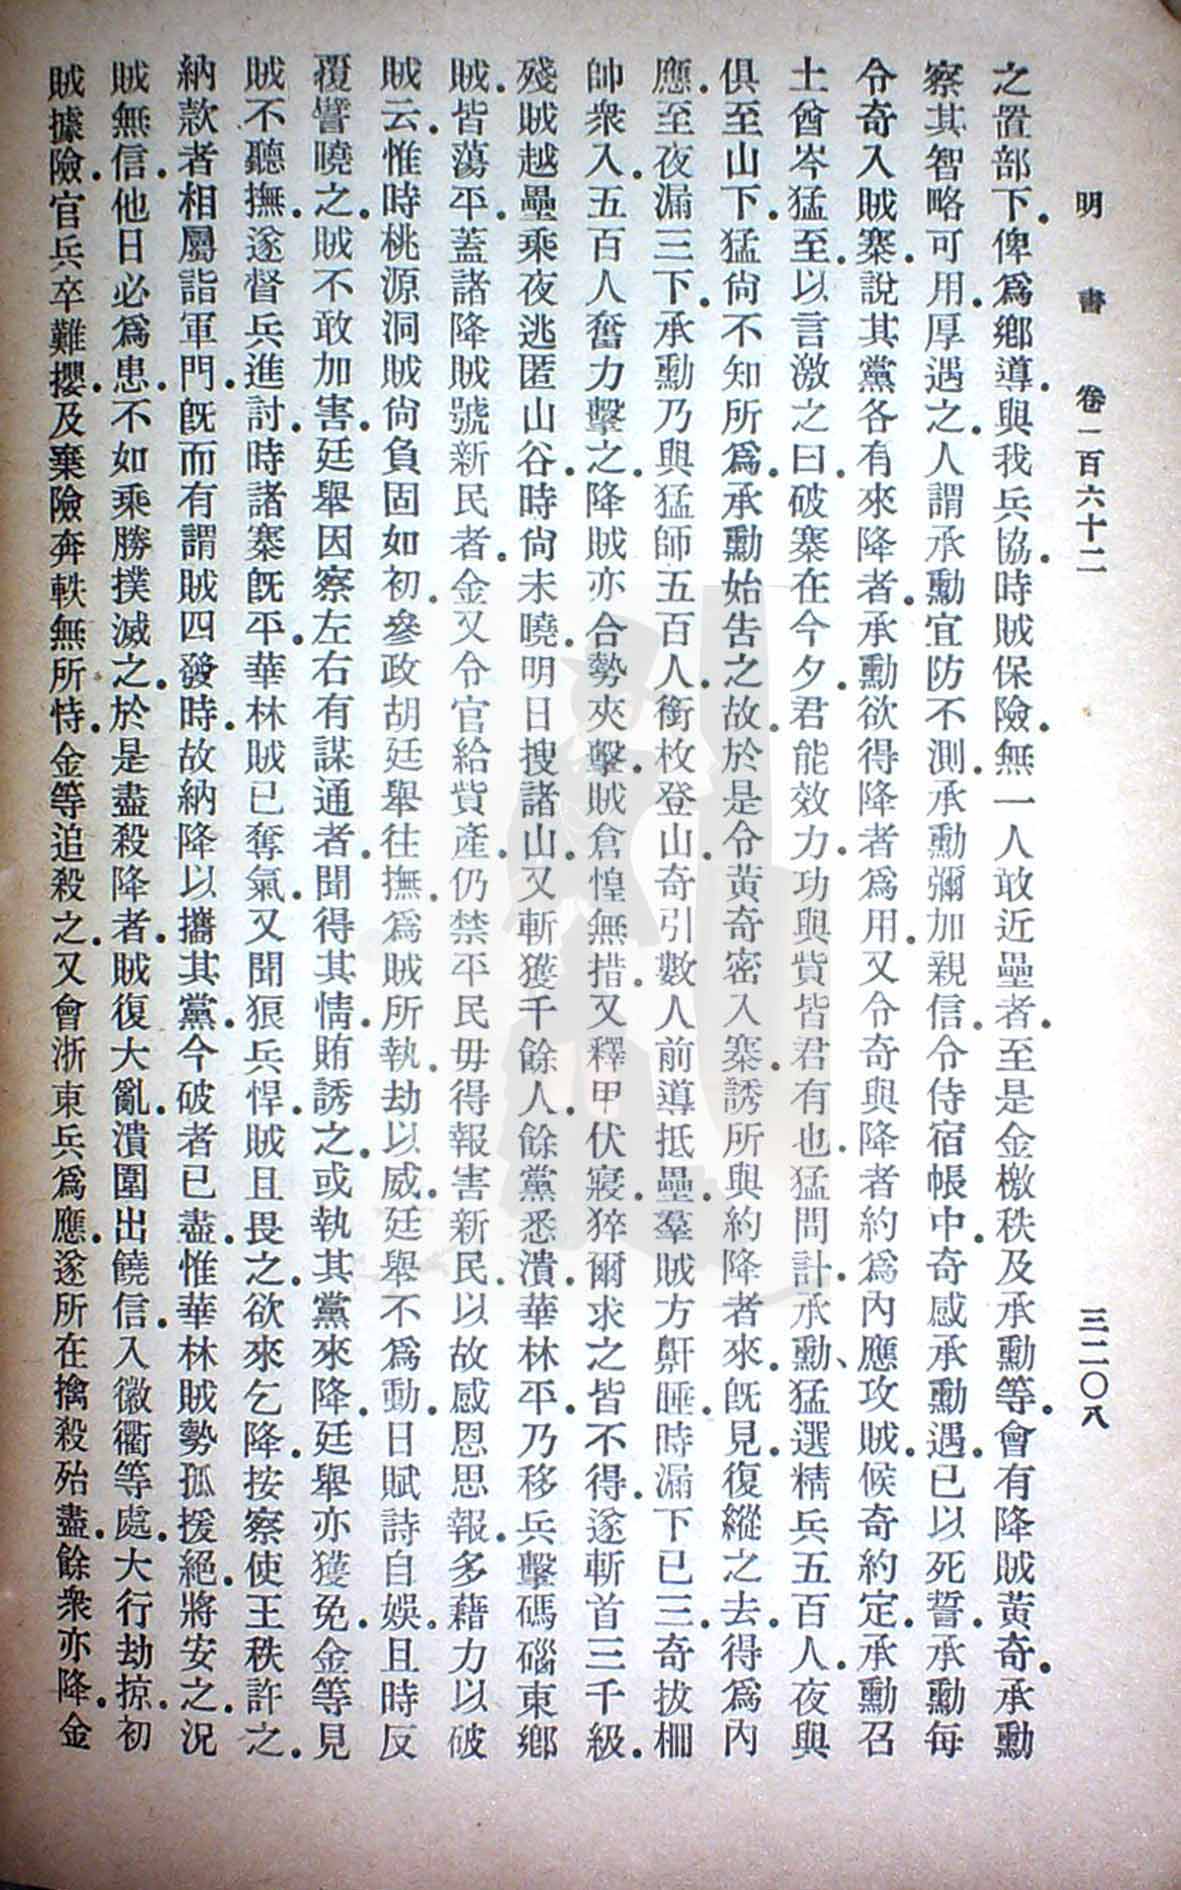 明書 卷一百六十二 三二〇八
之置部下.俾爲鄉導.與我兵協.時賊保險.無一人敢近壘者.至是金檄秩及承勳等.會有降賊黃奇.承勳
察其智略可用.厚遇之.人謂承勳宜防不測.承勳彌加親信.令侍宿帳中.奇感承勳遇.已以死誓.承勳每
令奇入賊寨.說其黨各有來降者.承勳欲得降者爲用.又令奇與降者約爲內應攻賊.候奇約定.承勳召
土酋岑猛至.以言激之曰.破寨在今夕.君能效力.功與貲皆君有也.猛問計.承勳、猛選精兵五百人.夜與
俱至山下.猛尙不知所爲.承勳始告之故.於是令黃奇密入寨.誘所與約降者來.旣見.復縱之去.得爲內
應.至夜漏三下.承勳乃與猛師五百人.銜枚登山.奇引數人前導抵壘.羣賊方鼾睡.時漏下已三.奇拔柵
帥衆入.五百人奮力擊之.降賊亦合勢夾擊.賊倉惶無措.又釋甲伏寢.猝爾求之皆不得.遂斬首三千級.
殘賊越壘乘夜逃匿山谷.時尙未曉.明日搜諸山.又斬獲千餘人.餘黨悉潰.華林平.乃移兵擊碼碯東鄕
賊.皆蕩平.蓋諸降賊號新民者.金又令官給貲產.仍禁平民毋得報害新民.以故感恩思報.多藉力以破
賊云.惟時桃源洞賊尙負固如初.參政胡廷舉往撫.爲賊所執.劫以威.廷舉不爲動.日賦詩自娛.且時反
覆譬曉之.賊不敢加害.廷舉因察左右有謀通者.聞得其情.賄誘之.或執其黨來降.廷舉亦獲免.金等見
賊不聽撫.遂督兵進討.時諸寨旣平.華林賊已奪氣.又聞狼兵悍.賊且畏之.欲來乞降.按察使王秩許之.
納款者相屬詣軍門.旣而有謂賊四發時.故納降以攜其黨.今破者已盡.惟華林賊勢孤援絕.將安之.況
賊無信.他日必爲患.不如乘勝撲滅之.於是盡殺降者.賊復大亂.潰圍出饒信.入徽衢等處.大行劫掠.初
賊據險.官兵卒難攖.及棄險奔軼無所恃.金等追殺之.又會浙東兵爲應.遂所在擒殺殆盡.餘衆亦降.金